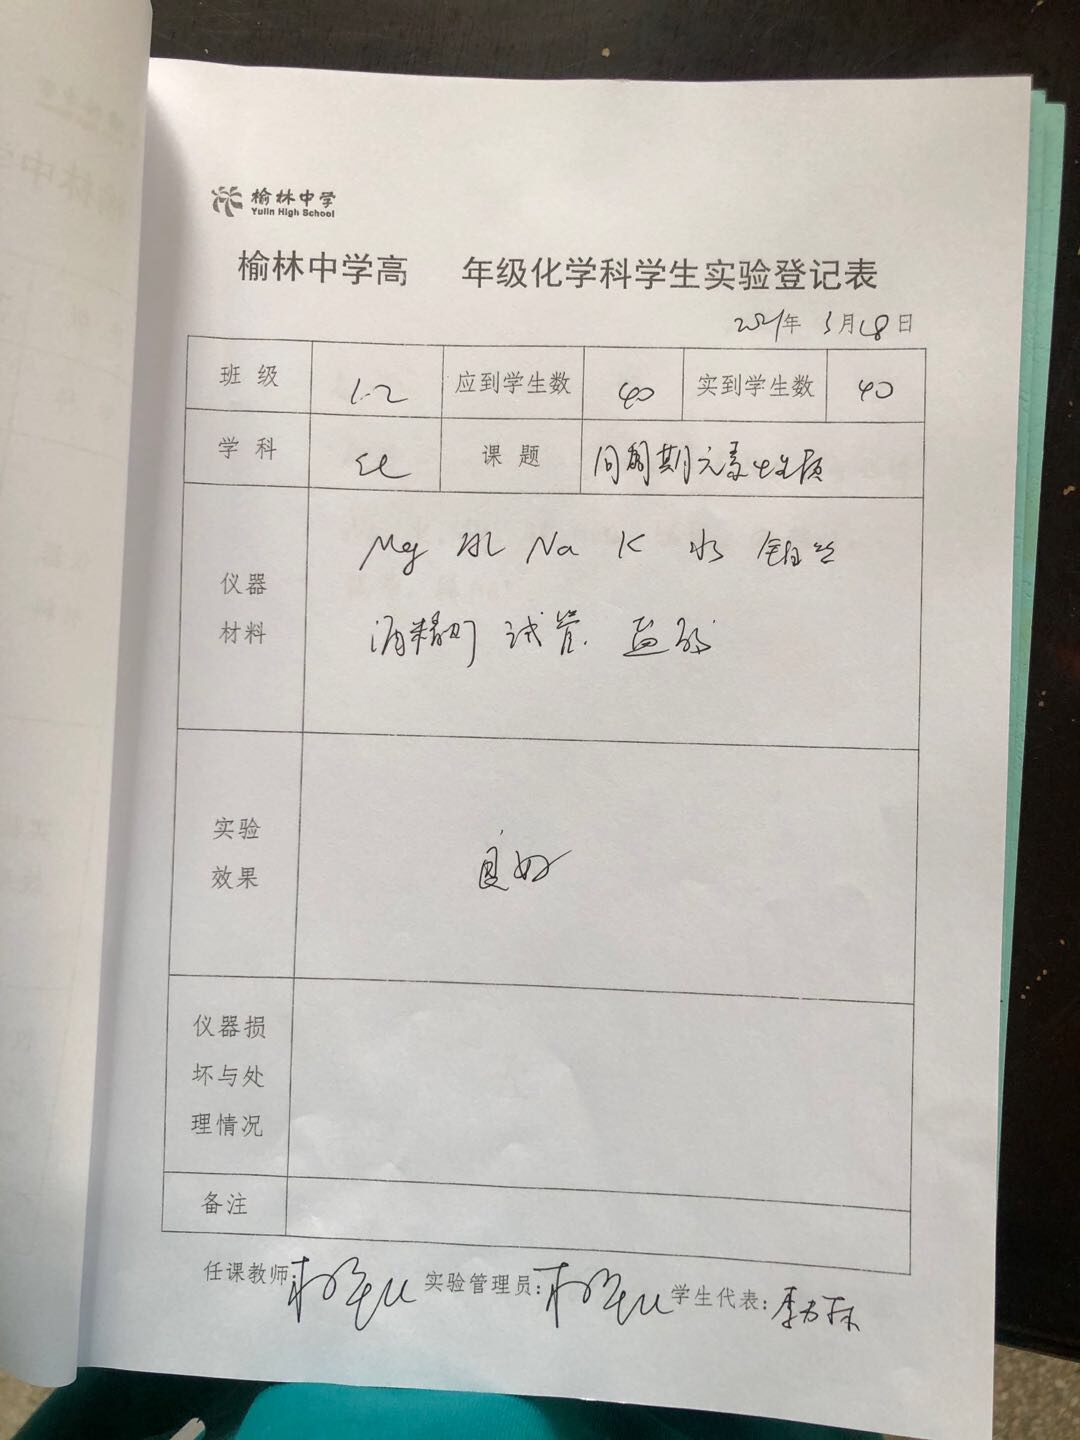 榆林中学
Yulin High School
榆林中学高 年级化学科学生实验登记表
2021年 3月18日
班级 1.2 应到学生数 40 实到学生数 40
学科 化 课题 同周期元素性质
仪器材料 Mg Al Na K 水 铂丝
酒精灯 试管. 盐酸
实验效果 良好
仪器损坏与处理情况
备注
任课教师: 实验管理员: 学生代表: 李